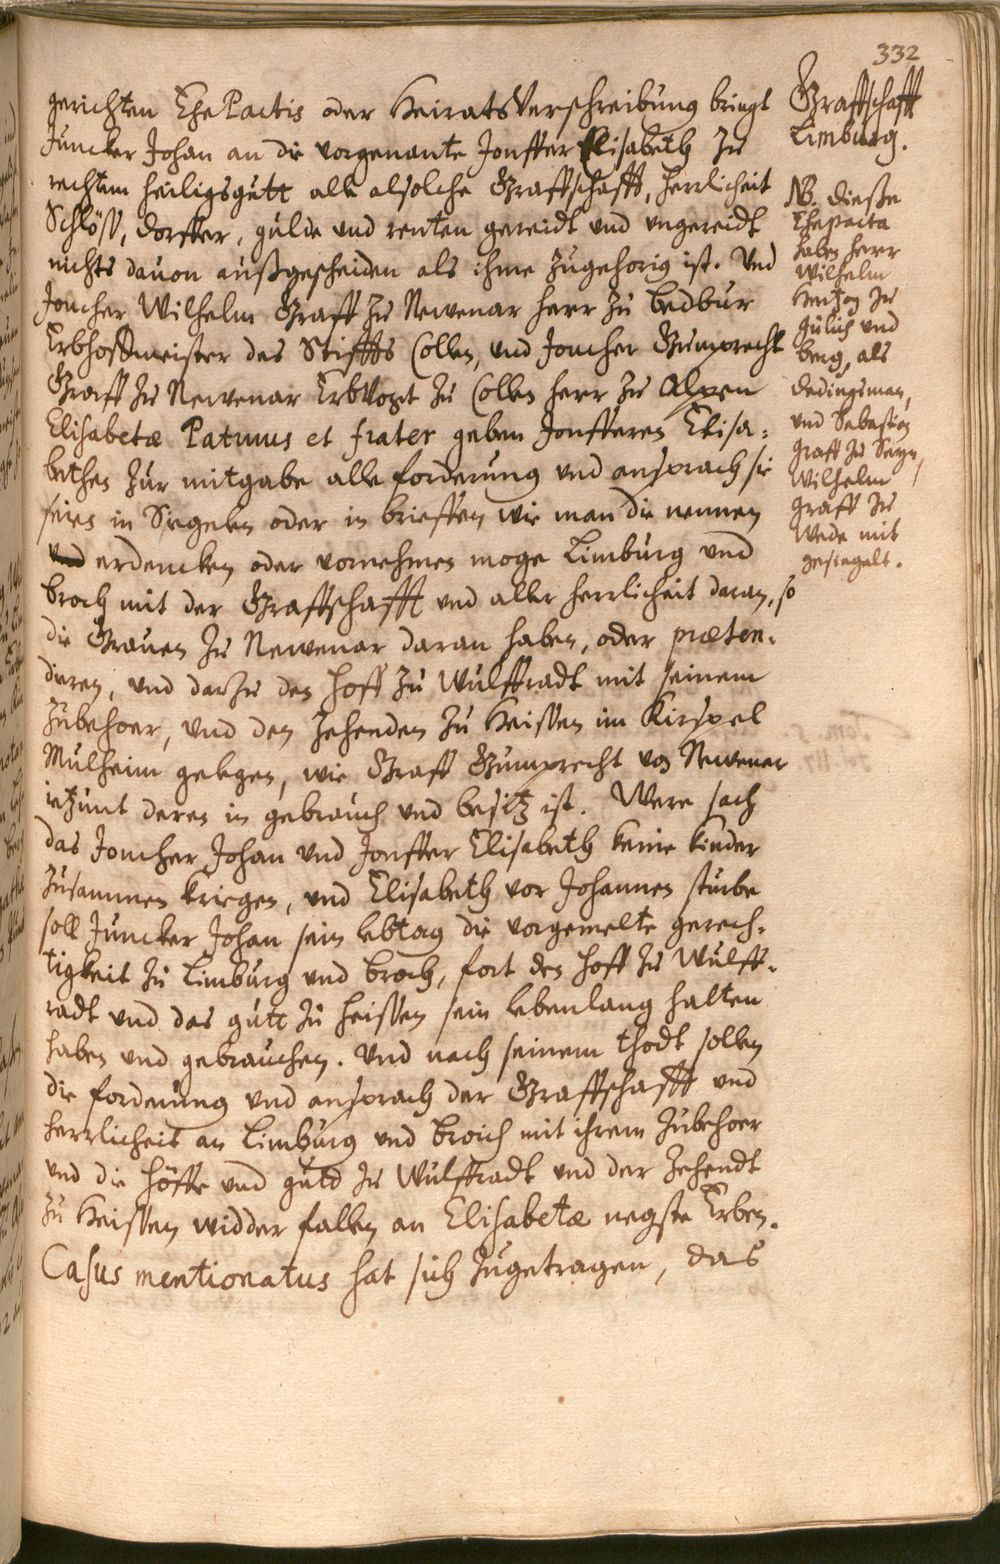 332
gerichten Ehe Pactis oder HeiratsVerschreibung bringt
Juncker Johan an die vorgenante Jonffer Elisabeth zu
rechtem heiligsgutt alle alsolche Graffschafft, herrlicheit
Schlöss, dorffer, gulde und renten gereidt und ungereidt
nichts dauon außgescheiden als ihme zugehorig ist. Und
Joncher Wilhelm Graff zu Newenar herr zu Bedbur
Erbhoffmeister des Stiffts Collen, und Joncher Gumprecht
Graff zu Newenar ErbVogt zu Collen herr zu Alpen
Elisabetæ Patruus et frater geben Jonfferen Elisa:
bethen zur mitgabe alle forderung und ansprach sie
seies in Siegelen oder in brieffen, wie man die nennen
und erdencken oder vornehmen moge Limburg und
broch mit der Graffschafft und aller herrlicheit daran, so
die Grauen zu Newenar daran haben, oder præten:
dieren, und darzu den hoff zu Wulffradt mit seinem
zubehoer, und den Zehenden zu Heissen im Kirspel
Mulheim gelegen, wie Graff Gumprecht von Newenar
ietzunt deren in gebrauch und besitz ist. Were sach
das Joncher Johan und Jonffer Elisabeth keine kinder
zusammen kriegen, und Elisabeth vor Johannen sturbe
soll Juncker Johan sein lebtag die vorgemelte gerech:
tigkeit zu Limburg und broch, fort den hoff zu Wulff:
radt und das gutt zu heissen sein lebenlang halten
haben und gebrauchen. Und nach seinem thodt sollen
die forderung und ansprach der Graffschafft und
herrlicheit an Limburg und broich mit ihrem zubehoer
und die höffe und gutd zu Wulffradt und der Zehendt
zu Heissen widder fallen an Elisabetæ negste Erben.
Casus mentionatus hat sich zugetragen, das
Graffschafft
Limburg.
NB. dieße
Ehepacta
haben herr
Wilhelm
Hertzog zu
Gulich und
berg, als
dedingsman,
und Sebastian
graff zu Seyn,
Wilhelm
graff zu
Wede mit
gesiegelt.